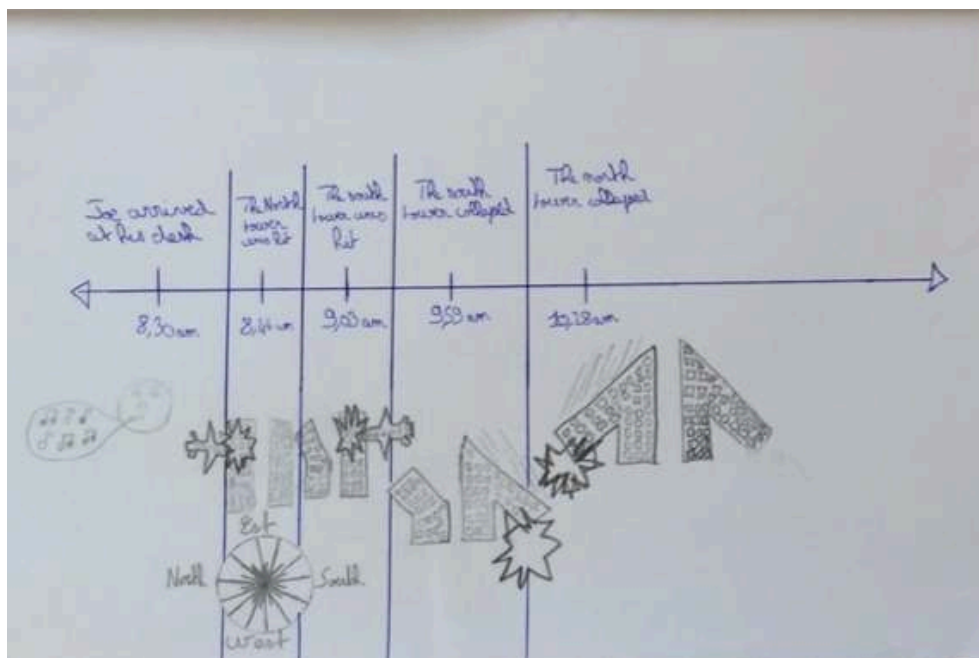 Joe arrived
at his desk
The North
tower
was hit
The south
tower was
hit
The south
tower collapsed
The north
tower collapsed
8,30 am
9,03 am
9,59 am
10,28 am
Est
North
South
West